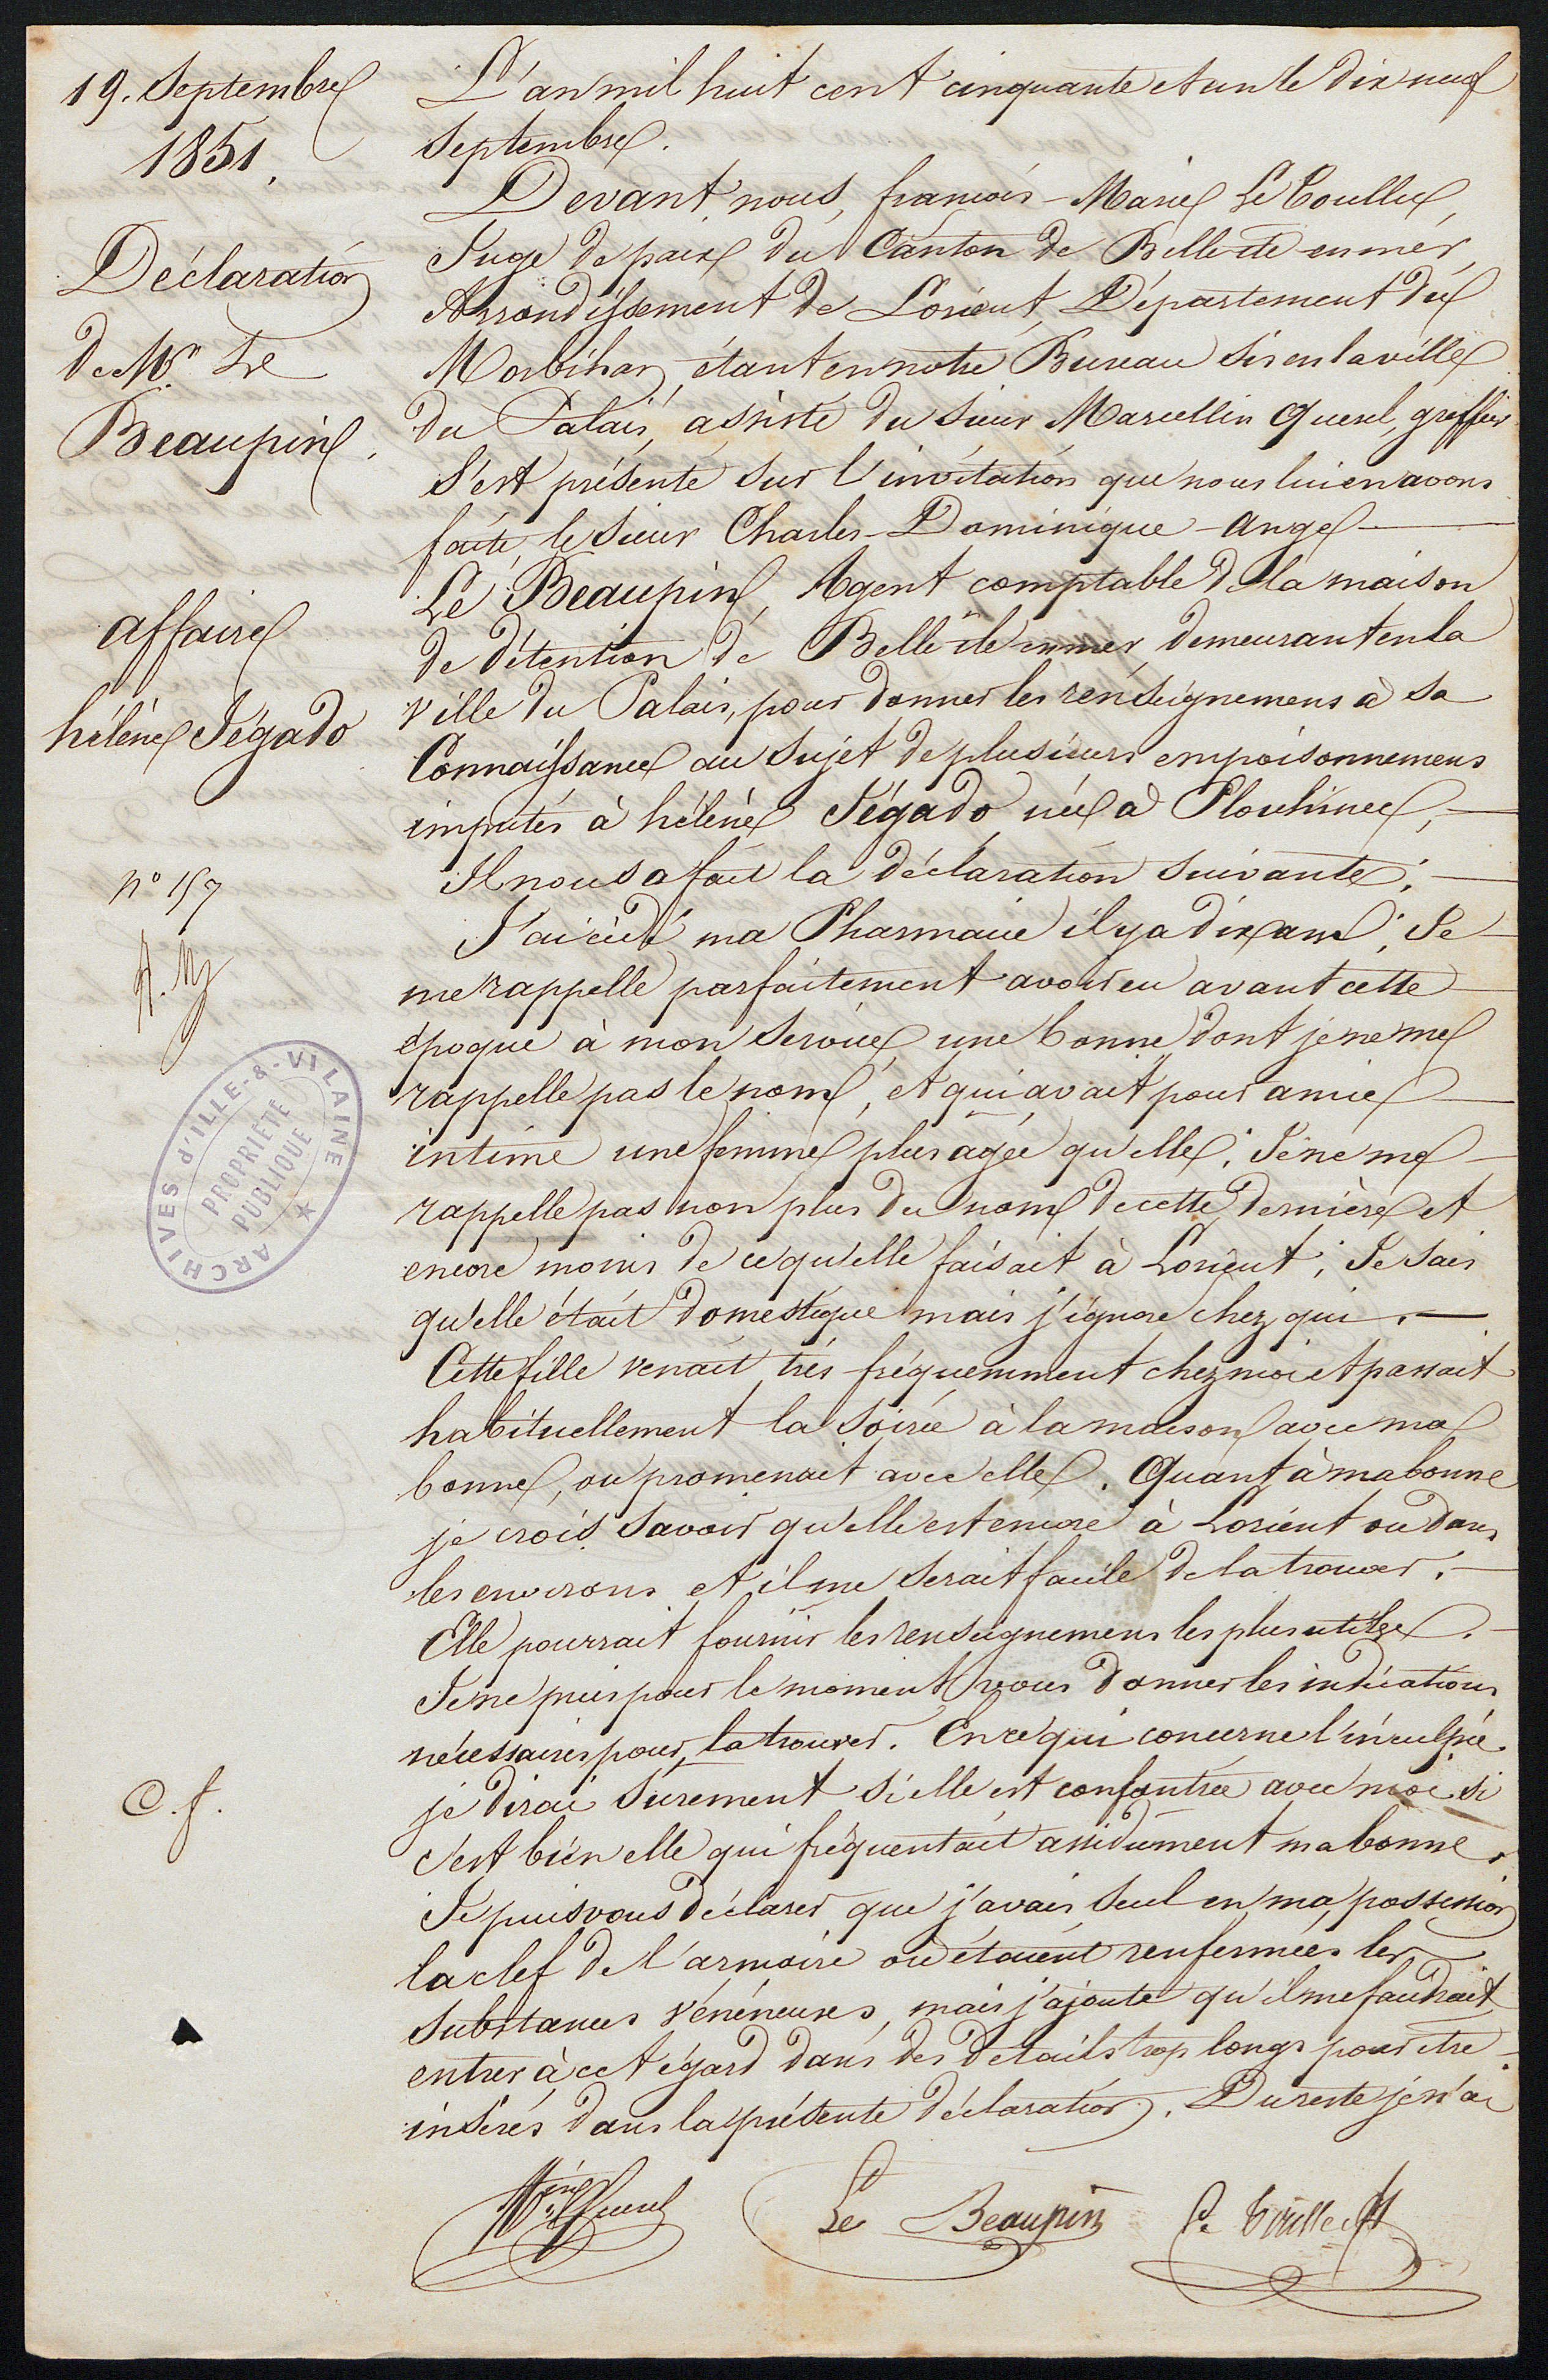 19. Septembre
1851.
Déclaration
de Mr. Le
Beaupin.
affaire
hélène Jégado
no 157
C. f.
ARCHIVES d'ILLE-&-VILAINE
PROPRIÉTÉ
PUBLIQUE
L'an mil huit cent cinquante et un le dix neuf
Septembre.
Devant nous, francois-Marie Le Toullec,
Juge de paix du Canton de Belle-ile en mer,
Arrondissement de Lorient, Département du
Morbihan, étant en notre Bureau sis en la ville
du Palais, assisté du sieur Marcellin Querel, greffier
S'est présenté sur l'invitation que nous lui en avons
faite, le Sieur Charles-Dominique-Ange
Le Beaupin, Agent comptable de la maison
de détention de Belle-ile en mer, demeurant en la
ville du Palais, pour donner les renseignemens à sa
Connaissance au sujet de plusieurs empoisonnemens
imputés à hélène Jégado, née à Plouhinec,
Il nous a fait la déclaration suivante;
J'ai cédé ma Pharmacie il y a dix ans; Je
me rappelle parfaitement avoir eu avant cette
époque à mon service, une bonne dont je ne me
rappelle pas le nom, et qui avait pour amie
intime une femme plus agée qu'elle; Je ne me
rappelle pas non plus du nom de cette dernière et
encore moins de ce qu'elle faisait à Lorient; Je sais
qu'elle était domestique mais j'ignore chez qui.
Cette fille venait très fréquemment chez moi et passait
habituellement la soirée à la maison avec ma
bonne, ou promenait avec elle. Quant à ma bonne
je crois savoir qu'elle est encore à Lorient ou dans
les environs et il me serait facile de la trouver.
Elle pourrait fournir les renseignemens les plus utiles.
Je ne puis pour le moment vous donner les indications
nécessaires pour la trouver. En ce qui concerne l'inculpée
je dirai surement si elle est confrontée avec moi si
c'est bien elle qui fréquentait assidument ma bonne.
Je puis vous déclarer que j'avais seul en ma possession
la clef de l'armoire où étaient renfermées les
substances vénéneuses, mais j'ajoute qu'il me faudrait
entrer à cet égard dans des détails trop longs pour etre
insérés dans la présente déclaration. Du reste je n'ai
Querel
Le Beaupin
Le Toullec